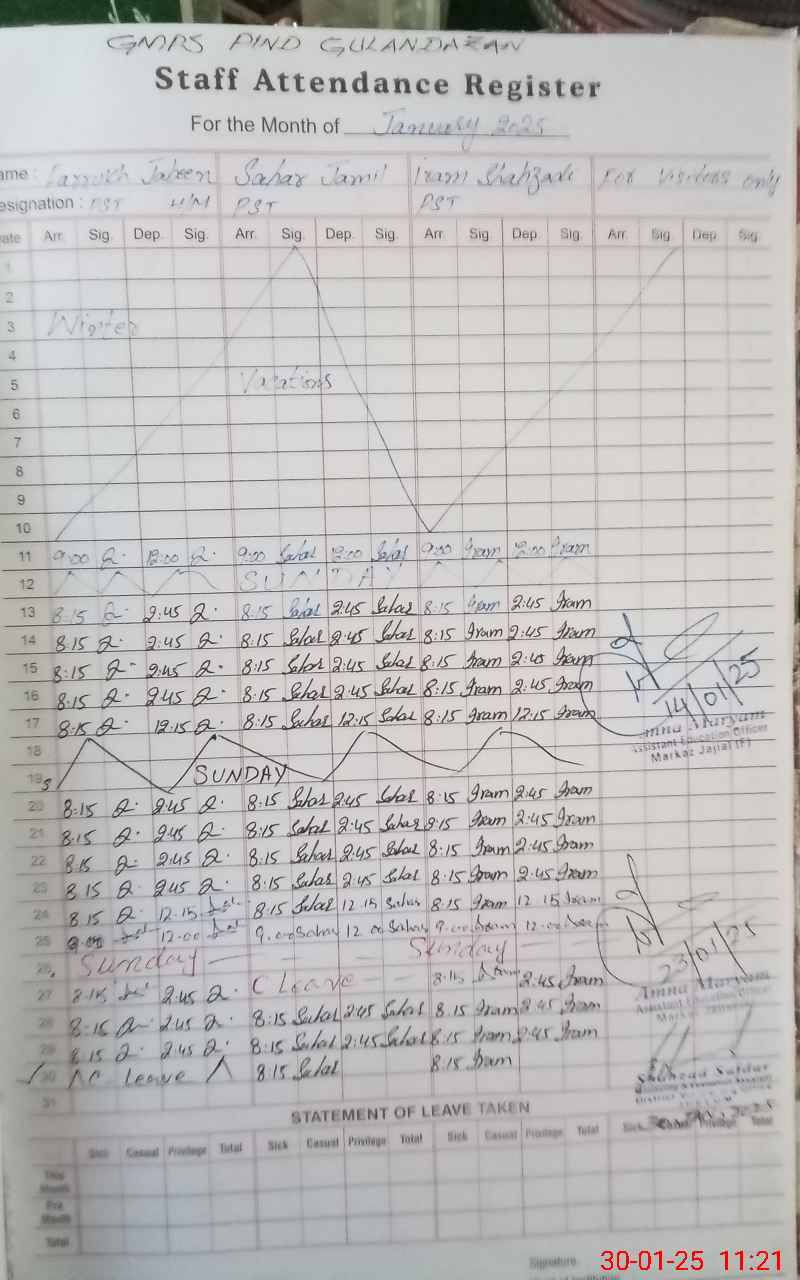 GMRS PIND GULANDAZAN
Staff Attendance Register
For the Month of January 2025
ame : Farrukh Jabeen Sahar Jamil Iram Shahzadi For Visitors only
esignation : PST H/M PST PST
ate Arr. Sig. Dep. Sig. Arr. Sig. Dep. Sig. Arr. Sig. Dep. Sig. Arr. Sig. Dep. Sig.
1
2
3 Winter
4
5 Vacations
6
7
8
9
10
11 9:00 12:00 9:00 Sahar 12:00 Sahar 9:00 Iram 12:00 Iram
12 SUNDAY
13 8:15 2:45 8:15 Sahar 2:45 Sahar 8:15 Iram 2:45 Iram
14 8:15 2:45 8:15 Sahar 2:45 Sahar 8:15 Iram 2:45 Iram
15 8:15 2:45 8:15 Sahar 2:45 Sahar 8:15 Iram 2:45 Iram
16 8:15 2:45 8:15 Sahar 2:45 Sahar 8:15 Iram 2:45 Iram
17 8:15 12:15 8:15 Sahar 12:15 Sahar 8:15 Iram 12:15 Iram
14/01/25
Amna Maryam
Assistant Education Officer
Markaz Jajial (F)
18
19 SUNDAY
20 8:15 2:45 8:15 Sahar 2:45 Sahar 8:15 Iram 2:45 Iram
21 8:15 2:45 8:15 Sahar 2:45 Sahar 8:15 Iram 2:45 Iram
22 8:15 2:45 8:15 Sahar 2:45 Sahar 8:15 Iram 2:45 Iram
23 8:15 2:45 8:15 Sahar 2:45 Sahar 8:15 Iram 2:45 Iram
24 8:15 12:15 8:15 Sahar 12:15 Sahar 8:15 Iram 12:15 Iram
25 9:00 12:00 9:00 Sahar 12:00 Sahar 9:00 Iram 12:00 Iram
26 Sunday Sunday
23/01/25
Amna Maryam
Assistant Education Officer
27 8:15 2:45 C Leave 8:15 Iram 2:45 Iram
28 8:15 2:45 8:15 Sahar 2:45 Sahar 8:15 Iram 2:45 Iram
29 8:15 2:45 8:15 Sahar 2:45 Sahar 8:15 Iram 2:45 Iram
30 C Leave 8:15 Sahar 8:15 Iram
31
STATEMENT OF LEAVE TAKEN
Sick Casual Privilege Total Sick Casual Privilege Total Sick Casual Privilege Total Sick Casual Privilege Total
This Month
Pre Month
Total
Signature
30-01-25 11:21